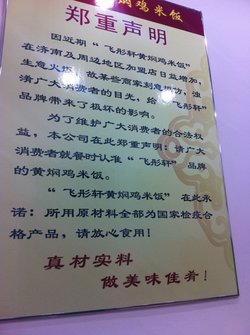 焖鸡米饭
郑重声明
因近期“飞彤轩黄焖鸡米饭”
在济南及周边地区加盟店日益增加，
生意火爆，故某些商家刻意模仿，
淆广大消费者的目光，给“飞彤轩”
品牌带来了极坏的影响。
为了维护广大消费者的合法权
益，本公司在此郑重声明：请广大
消费者就餐时认准“飞彤轩”品牌
的黄焖鸡米饭。
“飞彤轩黄焖鸡米饭”在此承
诺：所用原材料全部为国家检疫合
格产品，请放心食用！
真材实料
做美味佳肴！